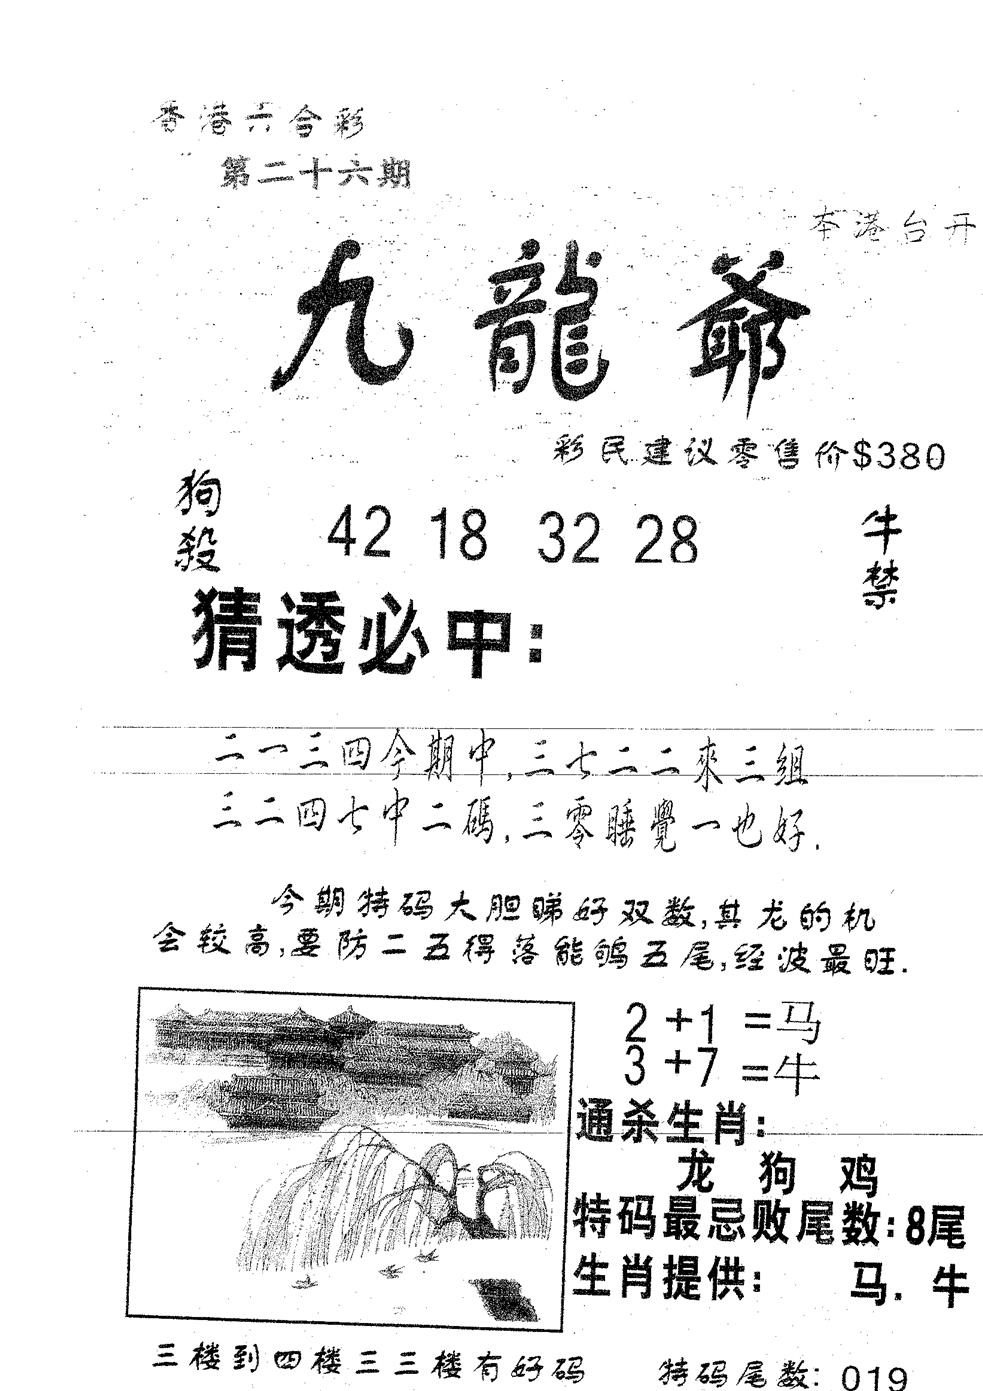 香港六合彩
第二十六期
本港台开
九龍爺
彩民建议零售价$380
狗殺
42 18 32 28
牛禁
猜透必中:
二一三四今期中,三七二二來三組
三二四七中二碼,三零睡覺一也好.
今期特码大胆睇好双数,其龙的机
会较高,要防二五得落能鸲五尾,经波最旺.
2+1=马
3+7=牛
通杀生肖:
龙 狗 鸡
特码最忌败尾数:8尾
生肖提供: 马. 牛
三楼到四楼三三楼有好码 特码尾数: 019